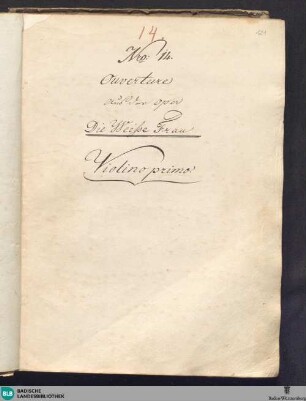 14.
Nro: 14.
Ouverture
aus der oper
Die Weiße Frau
Violino primo
BLB
BADISCHE
LANDESBIBLIOTHEK
Baden-Württemberg